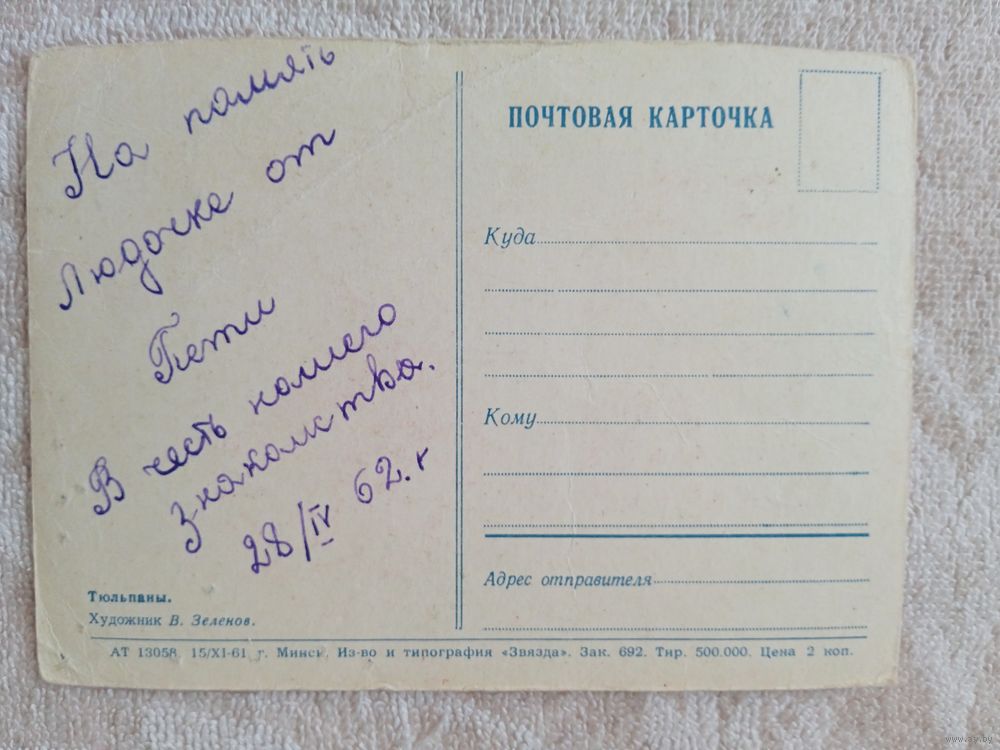 На память
Людочке от
Пети
В честь нашего
знакомства.
28/IV 62.г
Тюльпаны.
Художник В. Зеленов.
ПОЧТОВАЯ КАРТОЧКА
Куда
Кому
Адрес отправителя
АТ 13058. 15/XI-61 г. Минск. Из-во и типография «Звязда». Зак. 692. Тир. 500.000. Цена 2 коп.
www.ay.by